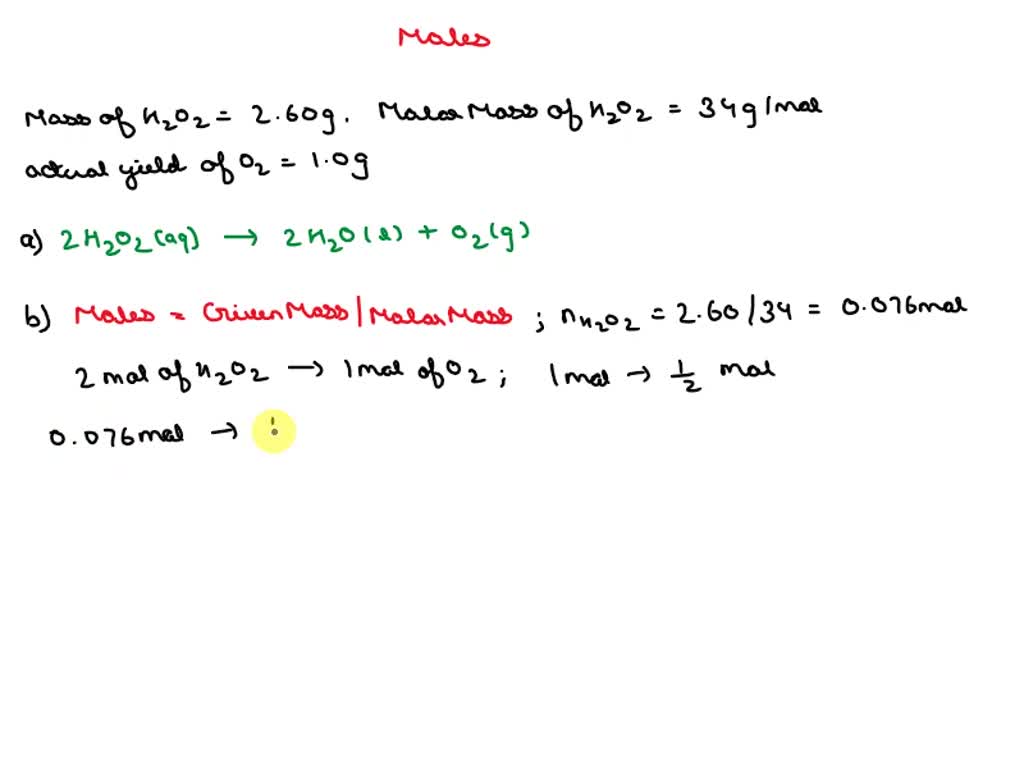 Moles
Mass of H₂O₂ = 2.60g. Molar Mass of H₂O₂ = 34g/mol
actual yield of O₂ = 1.0g
a) 2H₂O₂(aq) → 2H₂O(l) + O₂(g)
b) Moles = Given Mass | Molar Mass ; nH₂O₂ = 2.60/34 = 0.076mol
2 mol of H₂O₂ → 1 mol of O₂ ; 1 mol → 1/2 mol
0.076 mol →